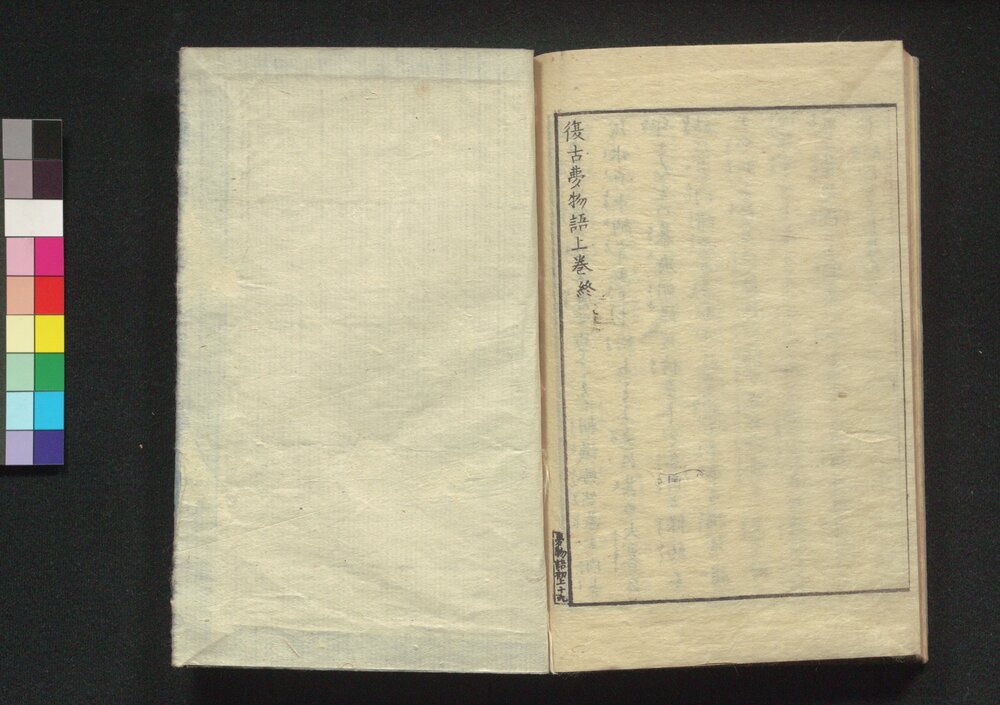 復古夢物語上巻終
夢物語初上十九